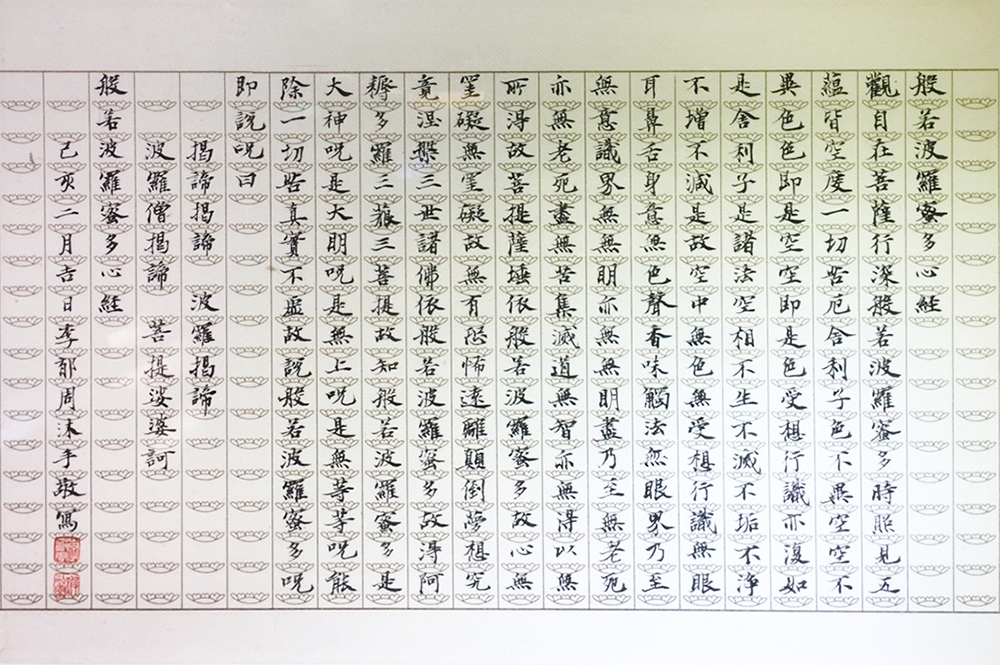 般若波羅蜜多心経
觀自在菩薩行深般若波羅蜜多時照見五
蘊皆空度一切苦厄舍利子色不異空空不
異色色即是空空即是色受想行識亦復如
是舍利子是諸法空相不生不滅不垢不淨
不增不減是故空中無色無受想行識無眼
耳鼻舌身意無色聲香味觸法無眼界乃至
無意識界無無明亦無無明盡乃至無老死
亦無老死盡無苦集滅道無智亦無得以無
所得故菩提薩埵依般若波羅蜜多故心無
罣礙無罣礙故無有恐怖遠離顛倒夢想究
竟涅槃三世諸佛依般若波羅蜜多故得阿
耨多羅三藐三菩提故知般若波羅蜜多是
大神呪是大明呪是無上呪是無等等呪能
除一切苦真實不虛故說般若波羅蜜多呪
即說呪曰
揭諦揭諦 波羅揭諦
波羅僧揭諦 菩提娑婆訶
般若波羅蜜多心経
己亥二月吉日李郁周沫手敬寫